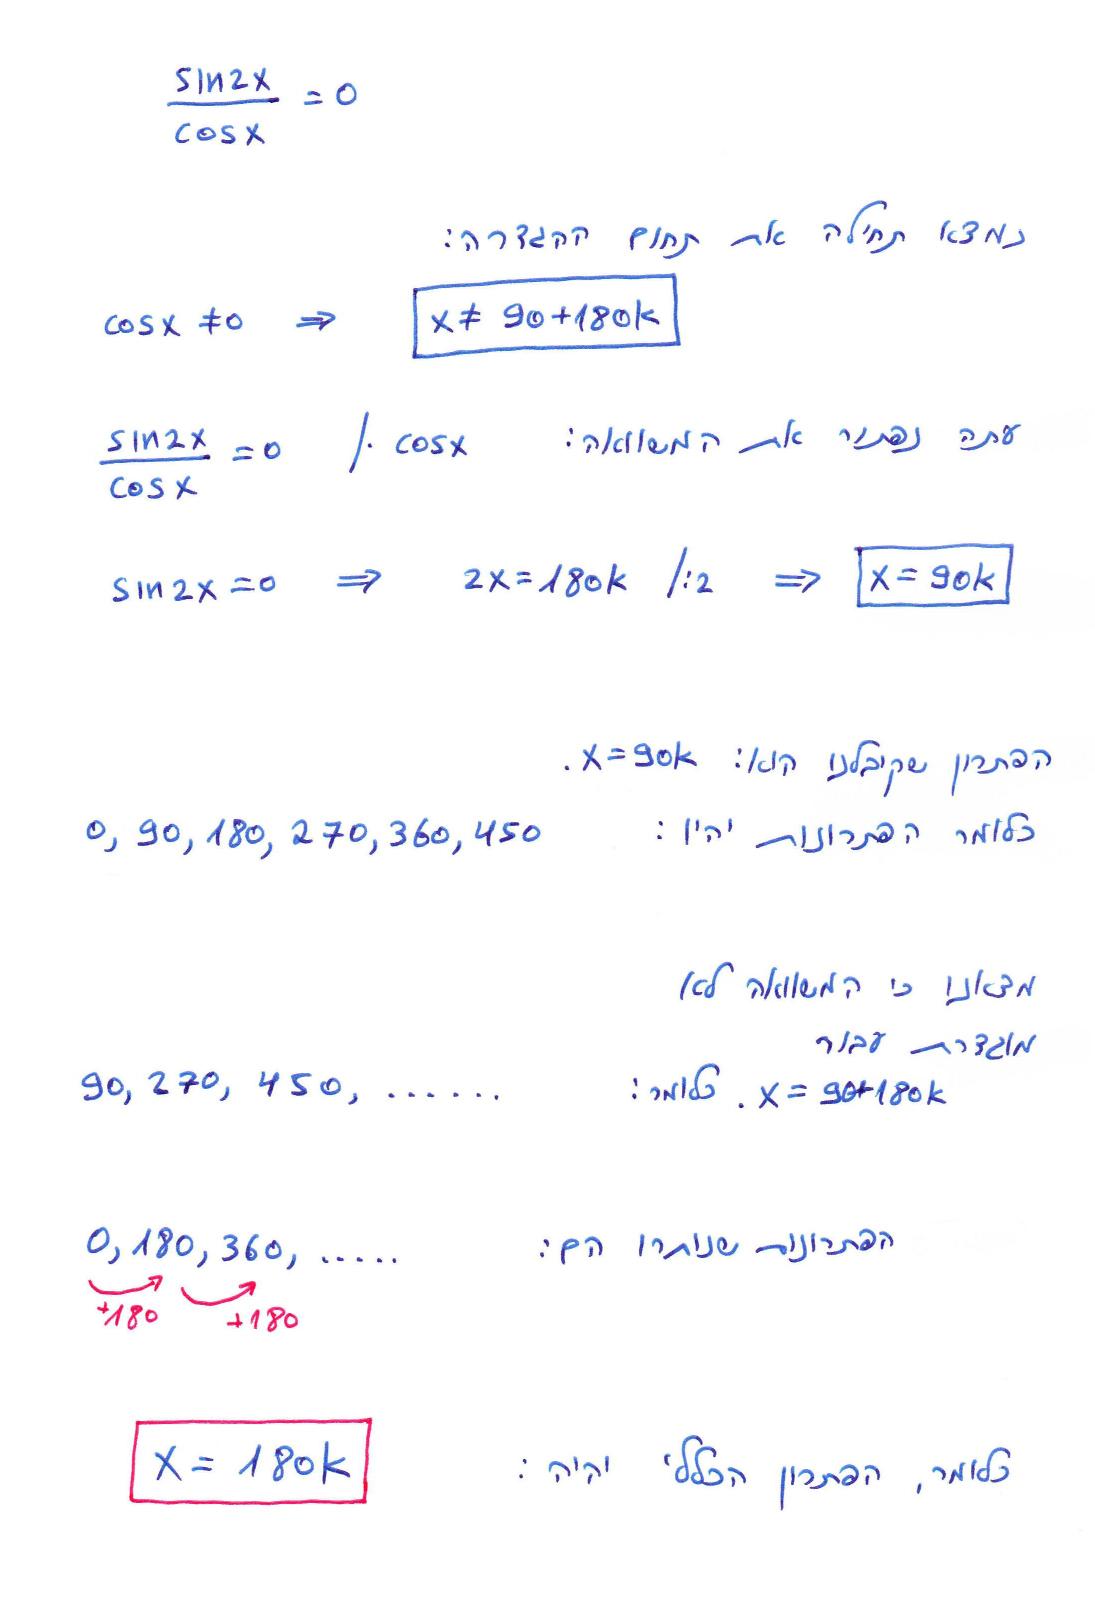 sin2x / cosx = 0
נמצא תחילה את תחום ההגדרה:
cosx ≠ 0 ⇒ x ≠ 90+180k
עתה נפתור את המשוואה: sin2x / cosx = 0 /· cosx
sin2x=0 ⇒ 2x=180k /:2 ⇒ x=90k
הפתרון שקיבלנו הוא: x=90k.
כלומר הפתרונות יהיו: 0, 90, 180, 270, 360, 450
מצאנו כי המשוואה לא
מוגדרת עבור
x=90+180k. כלומר: 90, 270, 450, ......
הפתרונות שנותרו הם: 0, 180, 360, .....
+180 +180
כלומר, הפתרון הכללי יהיה: x = 180k